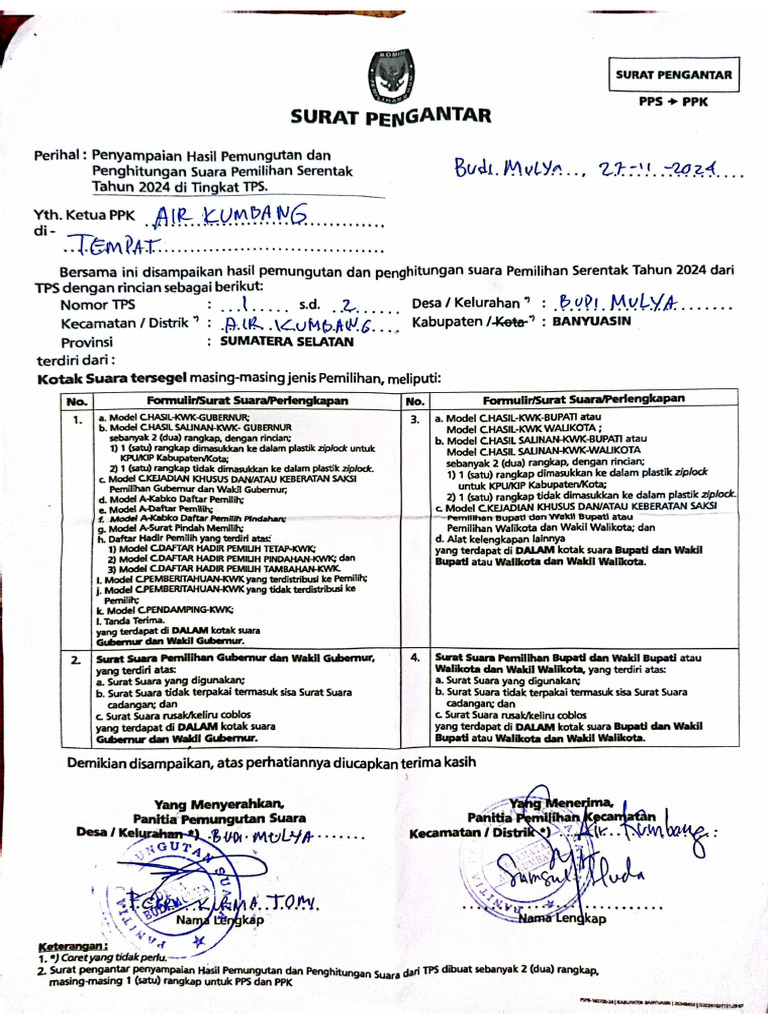 KOMISI
SURAT PENGANTAR
PPS → PPK
SURAT PENGANTAR
Perihal : Penyampaian Hasil Pemungutan dan
Penghitungan Suara Pemilihan Serentak
Tahun 2024 di Tingkat TPS.
Budi Mulya, 27-11-2024
Yth. Ketua PPK AIR KUMBANG
di - TEMPAT
Bersama ini disampaikan hasil pemungutan dan penghitungan suara Pemilihan Serentak Tahun 2024 dari
TPS dengan rincian sebagai berikut:
Nomor TPS : 1 s.d. 2 Desa / Kelurahan *) : BUDI MULYA
Kecamatan / Distrik *) : AIR KUMBANG Kabupaten / Kota *) : BANYUASIN
Provinsi : SUMATERA SELATAN
terdiri dari :
Kotak Suara tersegel masing-masing jenis Pemilihan, meliputi:
No. Formulir/Surat Suara/Perlengkapan
1. a. Model C.HASIL-KWK-GUBERNUR;
b. Model C.HASIL SALINAN-KWK- GUBERNUR
sebanyak 2 (dua) rangkap, dengan rincian;
1) 1 (satu) rangkap dimasukkan ke dalam plastik ziplock untuk
KPU/KIP Kabupaten/Kota;
2) 1 (satu) rangkap tidak dimasukkan ke dalam plastik ziplock.
c. Model C.KEJADIAN KHUSUS DAN/ATAU KEBERATAN SAKSI
Pemilihan Gubernur dan Wakil Gubernur;
d. Model A-Kabko Daftar Pemilih;
e. Model A-Daftar Pemilih;
f. Model A-Kabko Daftar Pemilih Pindahan;
g. Model A-Surat Pindah Memilih;
h. Daftar Hadir Pemilih yang terdiri atas:
1) Model C.DAFTAR HADIR PEMILIH TETAP-KWK;
2) Model C.DAFTAR HADIR PEMILIH PINDAHAN-KWK; dan
3) Model C.DAFTAR HADIR PEMILIH TAMBAHAN-KWK.
i. Model C.PEMBERITAHUAN-KWK yang terdistribusi ke Pemilih;
j. Model C.PEMBERITAHUAN-KWK yang tidak terdistribusi ke
Pemilih;
k. Model C.PENDAMPING-KWK;
l. Tanda Terima.
yang terdapat di DALAM kotak suara
Gubernur dan Wakil Gubernur.
2. Surat Suara Pemilihan Gubernur dan Wakil Gubernur,
yang terdiri atas:
a. Surat Suara yang digunakan;
b. Surat Suara tidak terpakai termasuk sisa Surat Suara
cadangan; dan
c. Surat Suara rusak/keliru coblos
yang terdapat di DALAM kotak suara
Gubernur dan Wakil Gubernur.
No. Formulir/Surat Suara/Perlengkapan
3. a. Model C.HASIL-KWK-BUPATI atau
Model C.HASIL-KWK WALIKOTA ;
b. Model C.HASIL SALINAN-KWK-BUPATI atau
Model C.HASIL SALINAN-KWK-WALIKOTA
sebanyak 2 (dua) rangkap, dengan rincian;
1) 1 (satu) rangkap dimasukkan ke dalam plastik ziplock
untuk KPU/KIP Kabupaten/Kota;
2) 1 (satu) rangkap tidak dimasukkan ke dalam plastik ziplock.
c. Model C.KEJADIAN KHUSUS DAN/ATAU KEBERATAN SAKSI
Pemilihan Bupati dan Wakil Bupati atau
Pemilihan Walikota dan Wakil Walikota; dan
d. Alat kelengkapan lainnya
yang terdapat di DALAM kotak suara Bupati dan Wakil
Bupati atau Walikota dan Wakil Walikota.
4. Surat Suara Pemilihan Bupati dan Wakil Bupati atau
Walikota dan Wakil Walikota, yang terdiri atas:
a. Surat Suara yang digunakan;
b. Surat Suara tidak terpakai termasuk sisa Surat Suara
cadangan; dan
c. Surat Suara rusak/keliru coblos
yang terdapat di DALAM kotak suara Bupati dan Wakil
Bupati atau Walikota dan Wakil Walikota.
Demikian disampaikan, atas perhatiannya diucapkan terima kasih
Yang Menyerahkan,
Panitia Pemungutan Suara
Desa / Kelurahan *) BUDI MULYA
PANITIA PEMUNGUTAN SUARA
Nama Lengkap
Yang Menerima,
Panitia Pemilihan Kecamatan
Kecamatan / Distrik *) Air Kumbang
PANITIA
Samsul Huda
Nama Lengkap
Keterangan :
1. *) Coret yang tidak perlu.
2. Surat pengantar penyampaian Hasil Pemungutan dan Penghitungan Suara dari TPS dibuat sebanyak 2 (dua) rangkap,
masing-masing 1 (satu) rangkap untuk PPS dan PPK